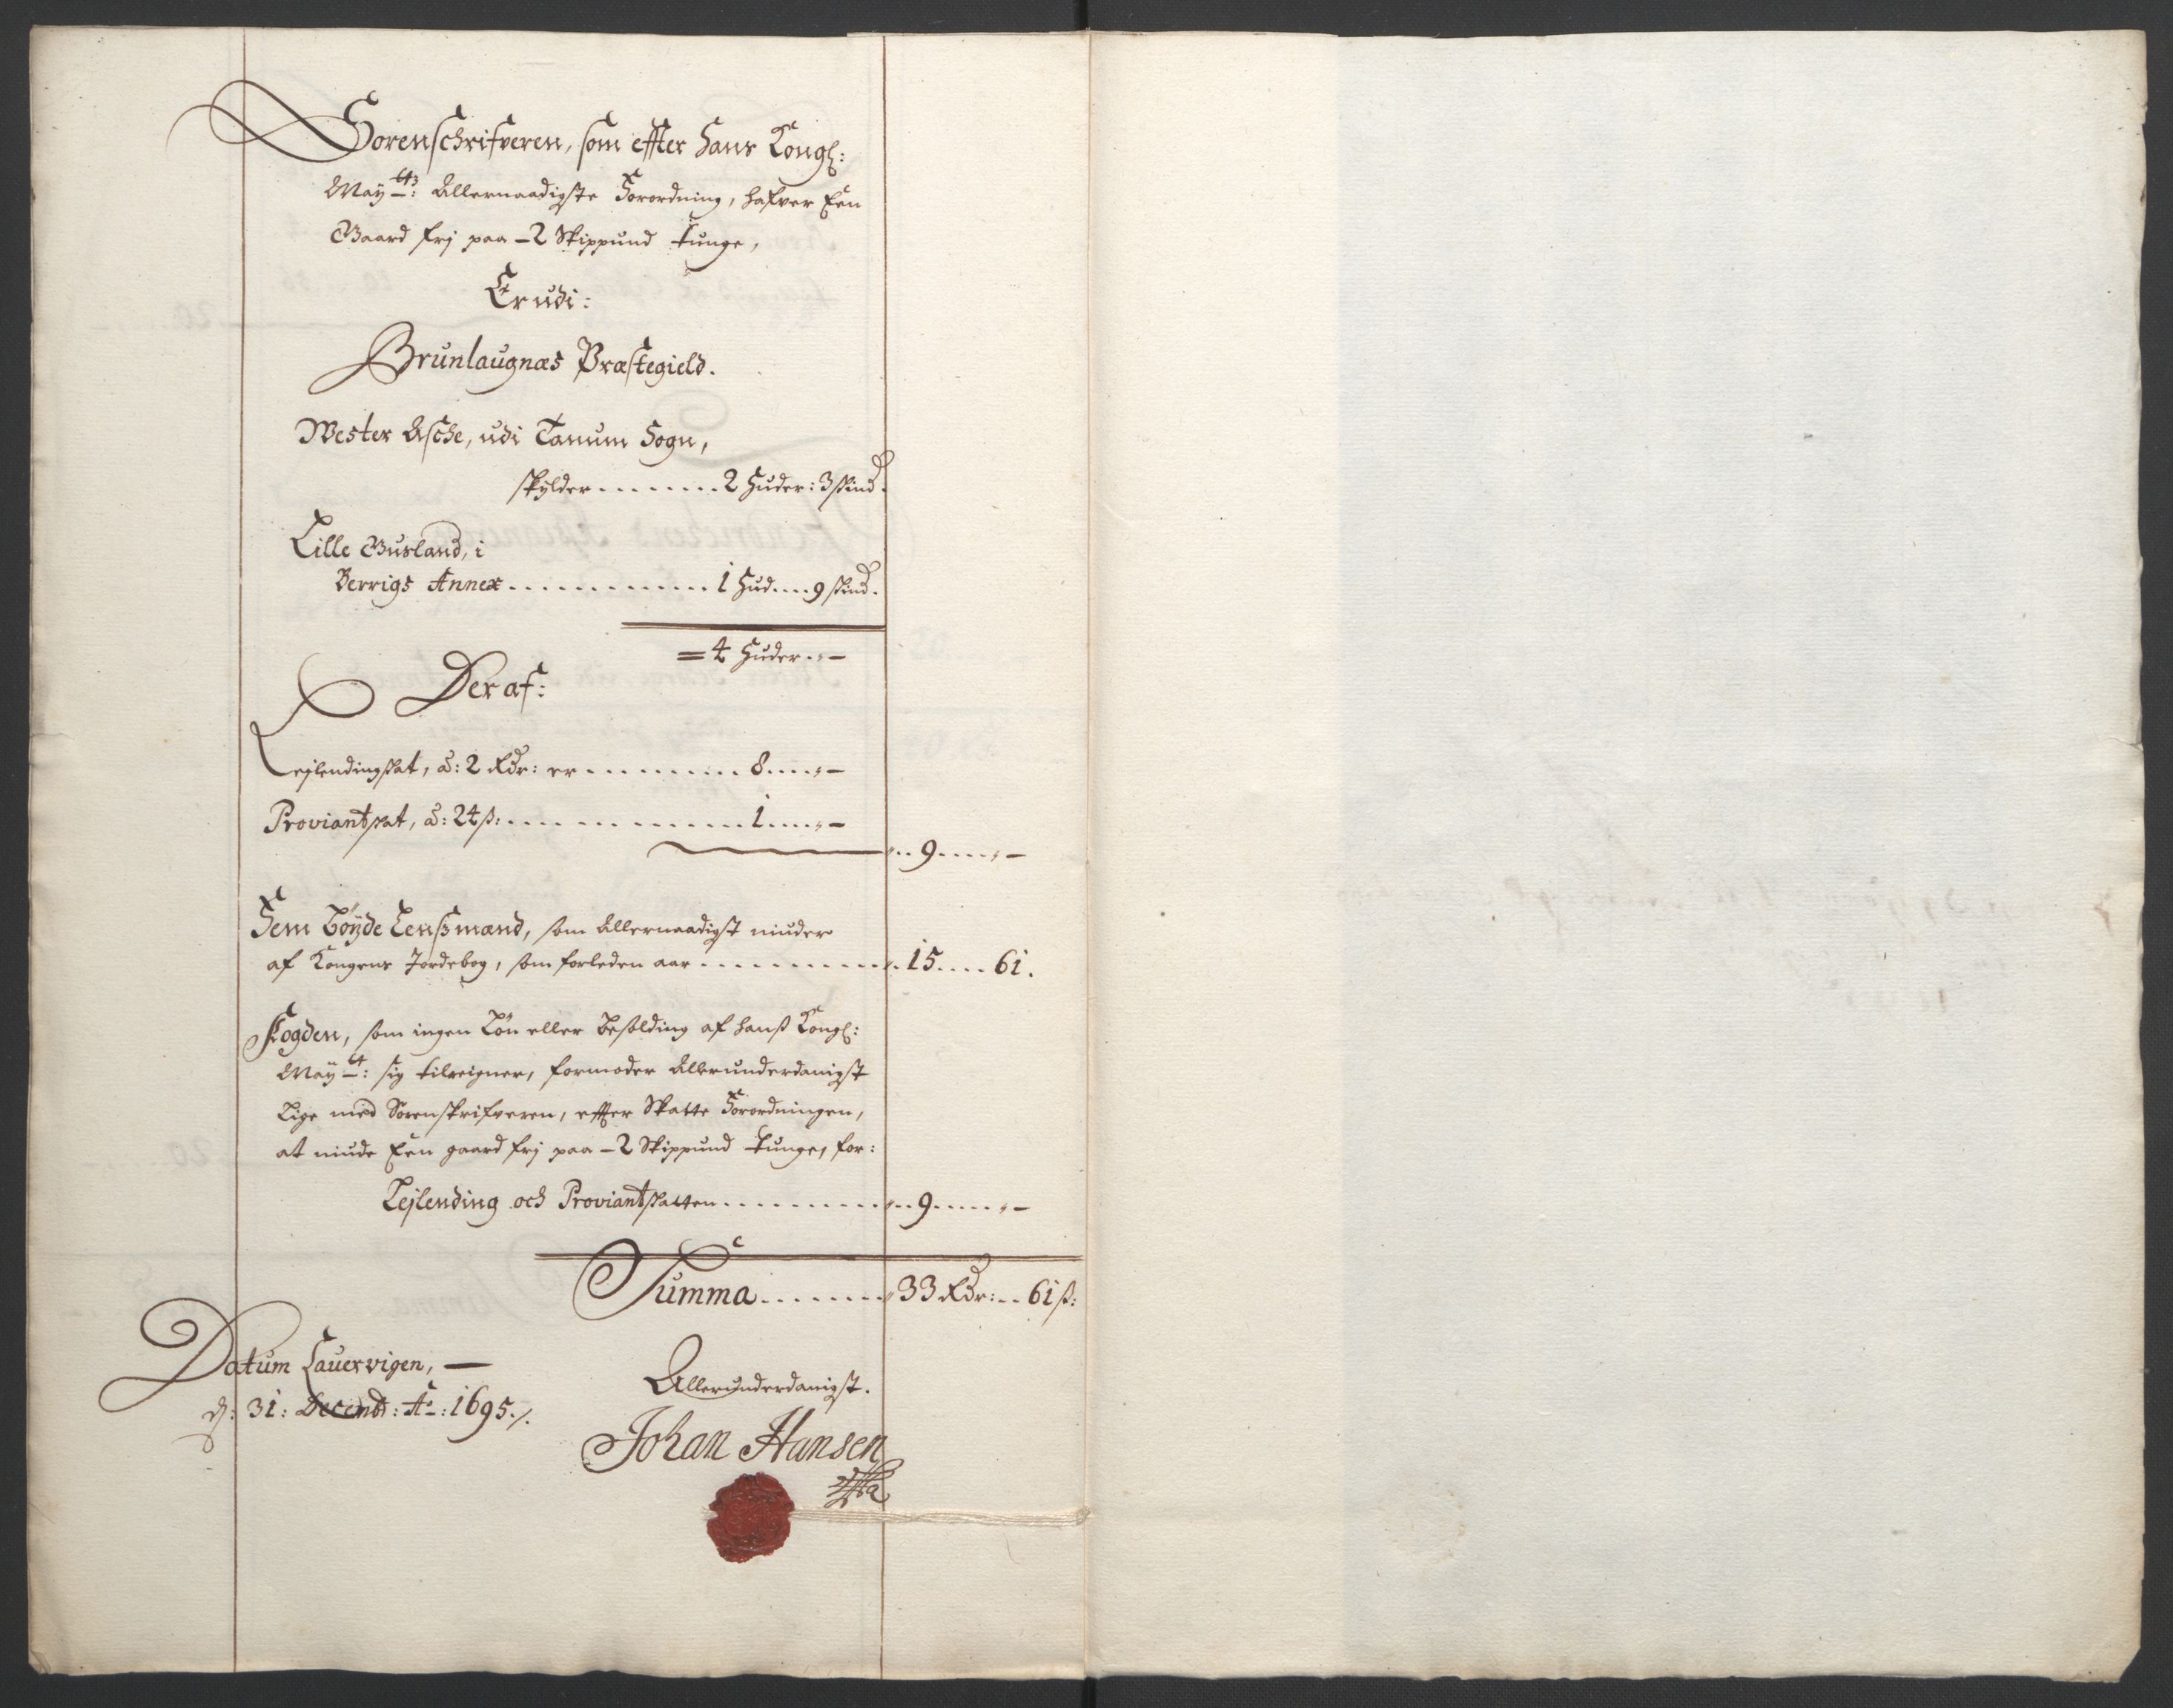 Sorenschrifveren, som effter Hans Kongl:
Mayts: Allernaadigste Forordning, hafver Een
Gaard frj paa - 2 Skippund tunge,
Er udi:
Brunlaugnæs Præstegield.
Wester Asche, udi Tanum Sogn,
skylder ....... 2 Huder: 3 skind.
Lille Gusland, i
Berrigs Annex ............ 1 Hud .... 9 skind.
= 4 Huder . „ -
Der af:
Lejlendingskat, â: 2 Rdr: er ......... 8 .... „ -
Proviantskat, â: 24 ß: ........... 1 .... „ -
„ .. 9 .... „ -
Fem Bøyde Lenßmænd, som Allernaadigst niuder
af Kongens Jordebog, som forleden aar .......... 15 .... 61.
Fogden, som ingen Løn eller Besolding af Hanß Kongl:
Mayt: sig tilreigner, formoder Allerunderdanigst
Lige med Sorenskrifveren, effter Skatte Forordningen,
at niude Een gaard frj paa - 2 Skippund tunge, for:
Lejlending och Proviantskatten .......... 9 ..... „ -
Summa ........ 33 Rdr: .. 61 ß:
Datum Lauervigen, -
d: 31: Decemb: Ao: 1695 ./.
Allerunderdanigst.
Johan Hansen